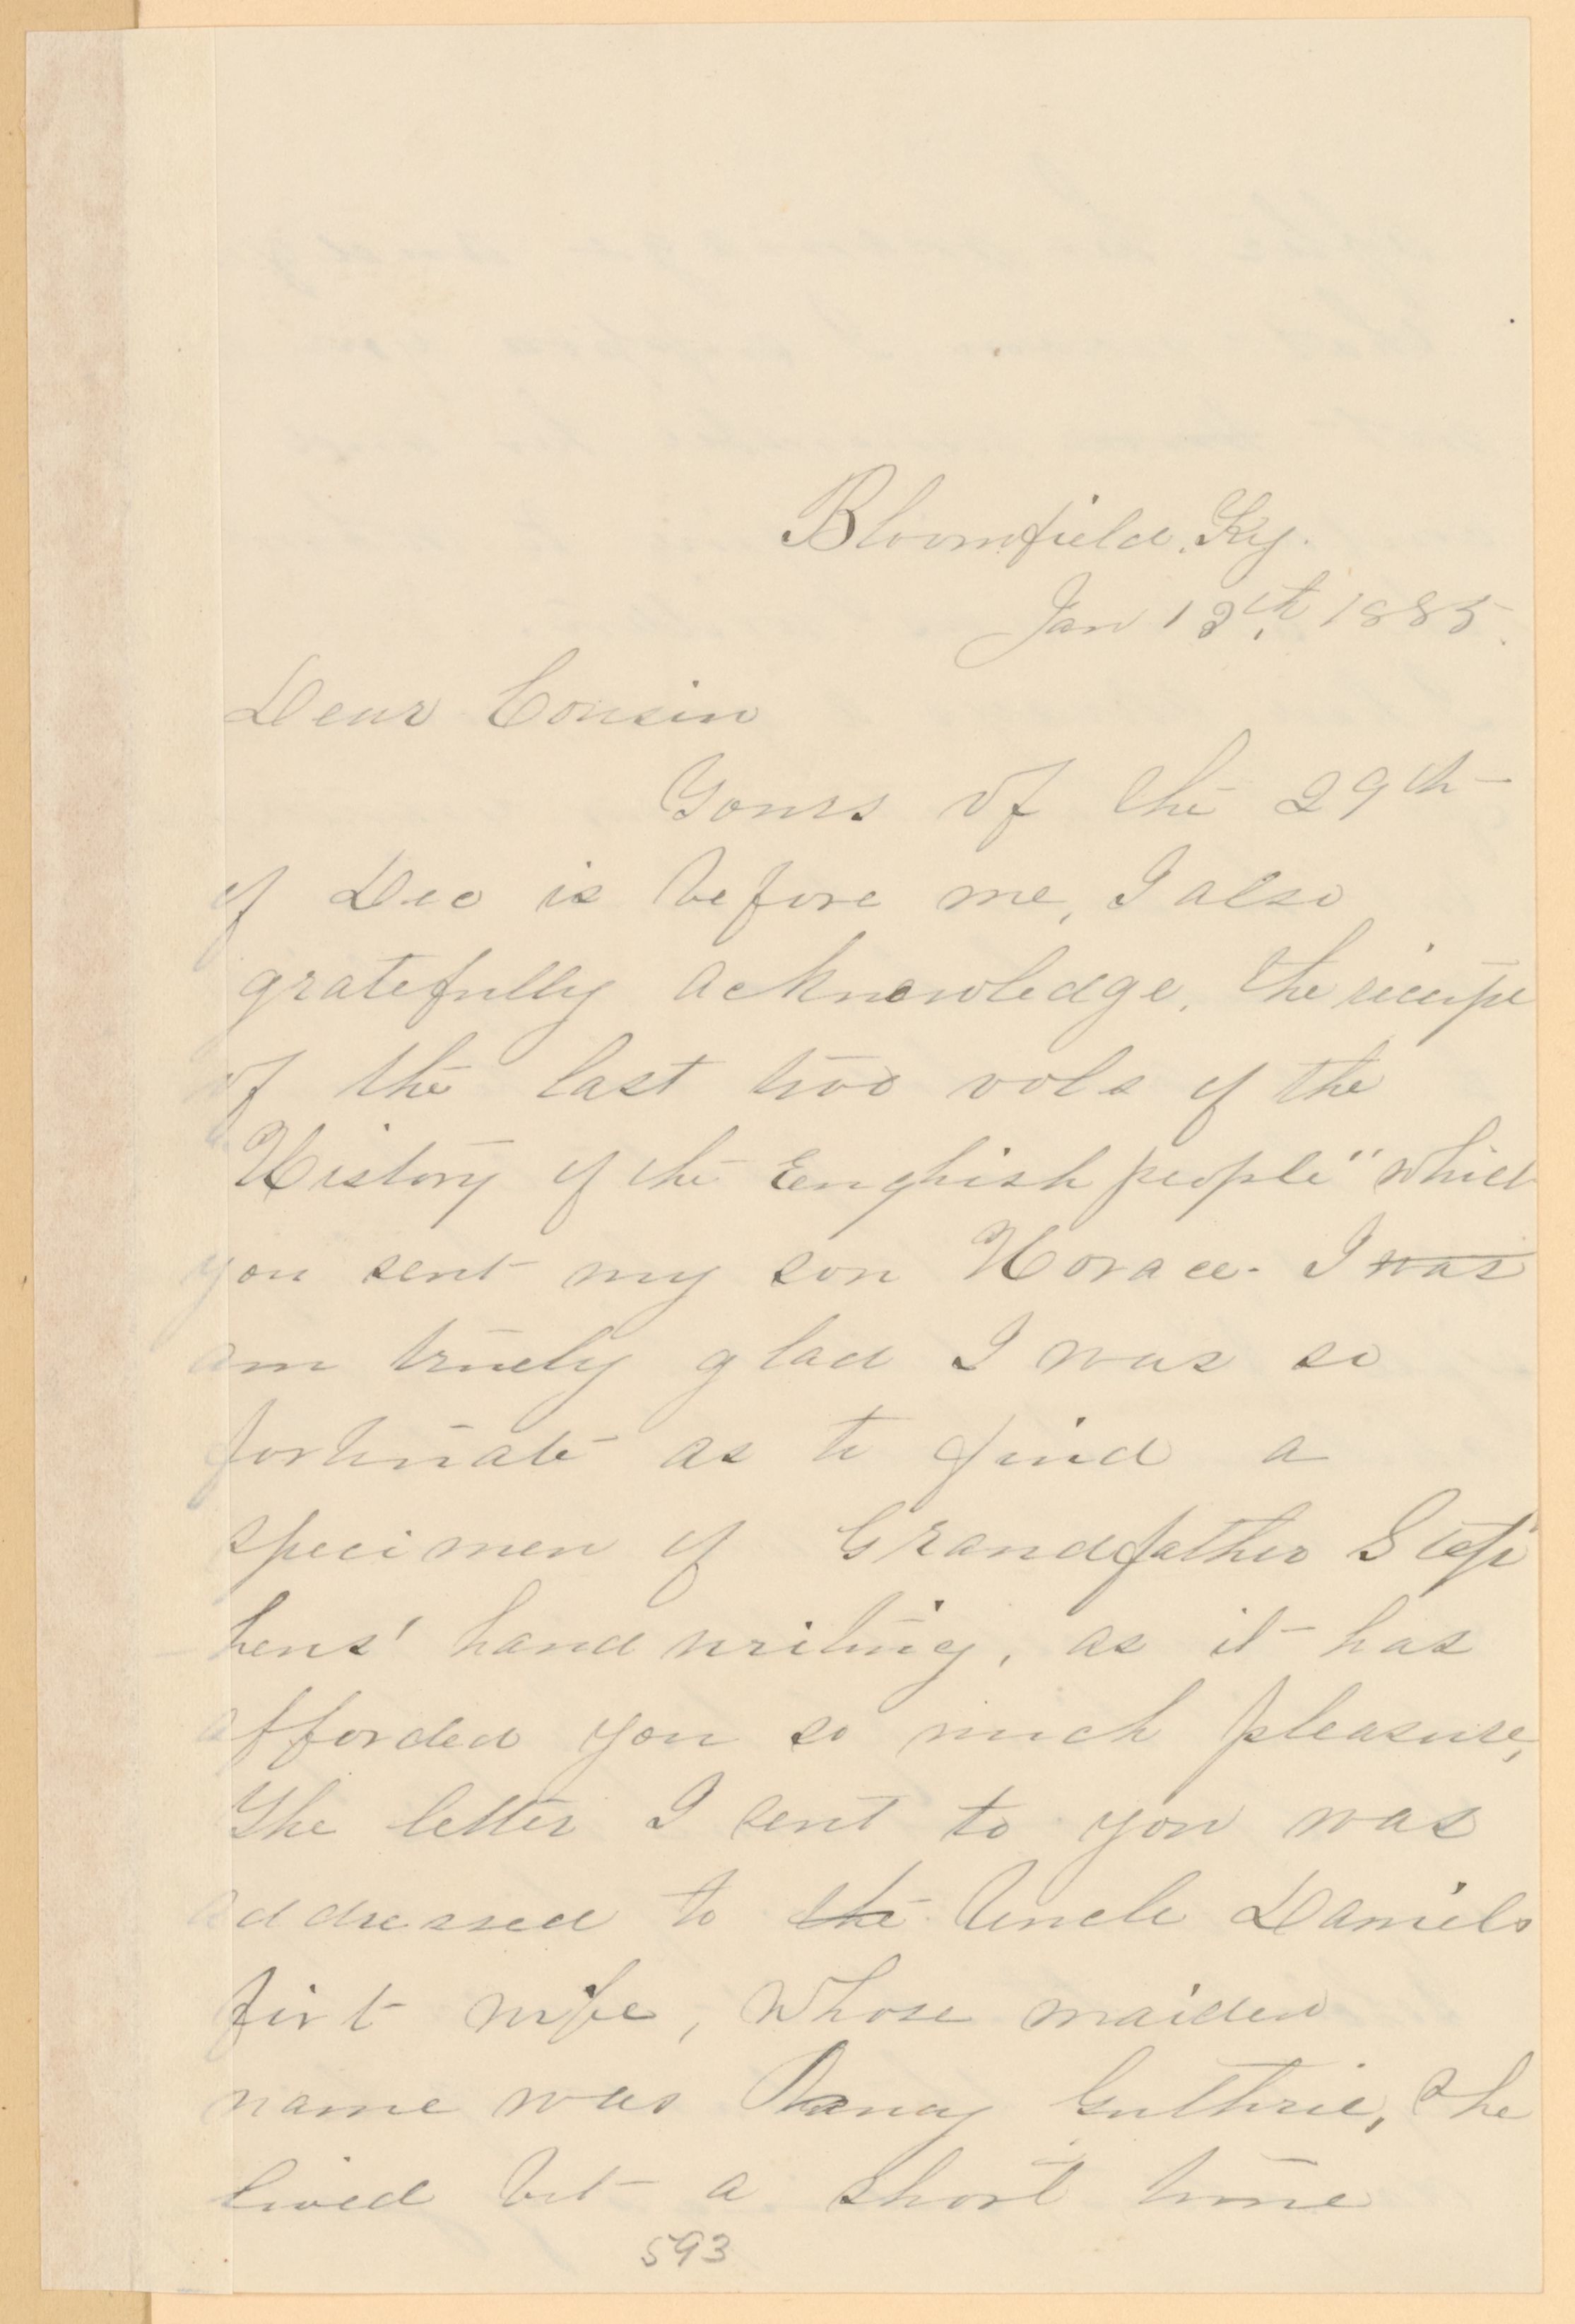 Bloomfield, Ky.
Jan 13th, 1885.
Dear Cousin
Yours of the 29th
of Dec is before me, I also
gratefully acknowledge, the
of the last two vols of the
"History of the English people" which
you sent my son Horace. I was
am truely glad I was so
fortunate as to find a
specimen of Grandfather Step
hens' handwriting, as it has
afforded you so much pleasure,
The letter I sent to you was
addressed to the Uncle Daniels
first wife, whose maiden
name was Guthrie, She
lived but a short time
593